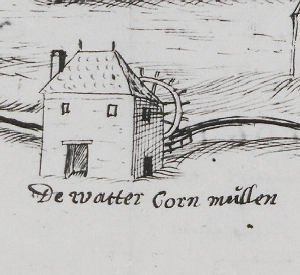 De watter Corn múllen